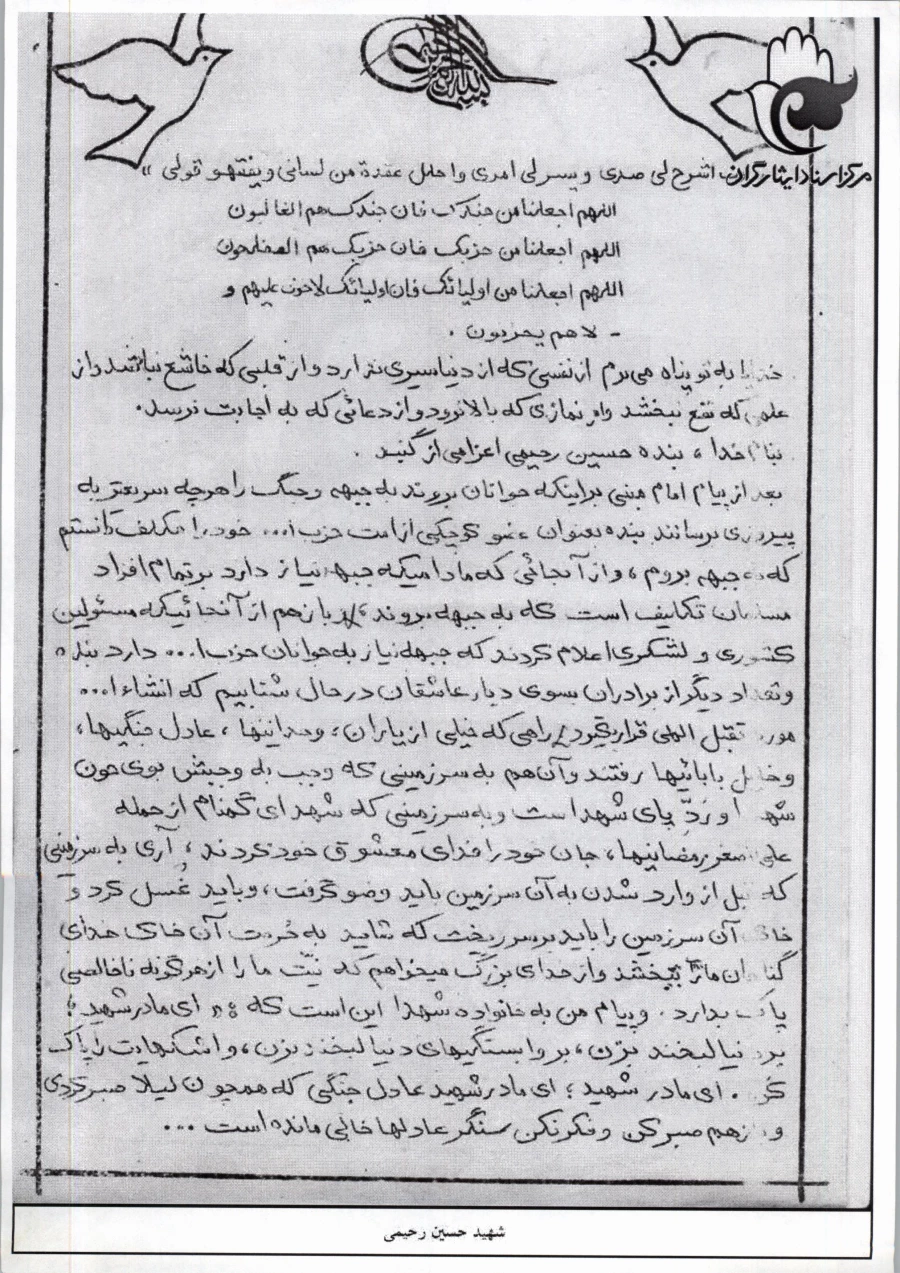 بسم الله الرحمن الرحیم
مرکز اسناد ایثارگران
اشرح لی صدری و یسر لی امری واحلل عقدة من لسانی و یفقهو قولی »
اللهم اجعلنا من جندک فان جندک هم الغالبون
اللهم اجعلنا من حزبک فان حزبک هم المفلحون
اللهم اجعلنا من اولیائک فان اولیائک لاخوف علیهم و
- لاهم یحزنون .
خدایا به تو پناه می برم از نفسی که از دنیا سیری ندارد و از قلبی که خاشع نباشد و از
علمی که نفع نبخشد و از نمازی که بالا نرود و از دعائی که به اجابت نرسد.
بنام خدا ، بنده حسین رحیمی اعزامی از گنبد .
بعد از پیام امام مبنی بر اینکه جوانان بروند به جبهه و جنگ را هرچه سریعتر به
پیروزی برسانند بنده بعنوان عضو کوچکی از امت حزب ا... خود را مکلف دانستم
که به جبهه بروم ، و از آنجائی که مادامیکه جبهه نیاز دارد بر تمام افراد
مسلمان تکلیف است که به جبهه بروند ، باز هم از آنجائیکه مسئولین
کشوری و لشگری اعلام کردند که جبهه نیاز به جوانان حزب ا... دارد بنده
و تعداد دیگر از برادران بسوی دیار عاشقان در حال شتابیم که انشاء ا...
مورد تقبل الهی قرار بگیرد راهی که خیلی از یاران ، وحدانیها ، عادل جنگیها ،
و خلیل بابائیها رفتند و آن هم به سرزمینی که وجب به وجبش بوی خون
شهدا و ردّ پای شهدا است و به سرزمینی که شهدای گمنام از جمله
علی اصغر رمضانیها ، جان خود را فدای معشوق خود کردند ، آری به سرزمینی
که قبل از وارد شدن به آن سرزمین باید وضو گرفت ، و باید غسل کرد و
خاک آن سرزمین را باید بر سر ریخت که شاید به حُرمت آن خاک خدای
گناهان ما را ببخشد و از خدای بزرگ میخواهم که نیّت ما را از هرگونه ناخالصی
پاک بدارد . و پیام من به خانواده شهدا این است که : « ای مادر شهید ؛
بر دنیا لبخند بزن ، بر وابستگیهای دنیا لبخند بزن ، و اشکهایت را پاک
کن . ای مادر شهید ؛ ای مادر شهید عادل جنگی که همچون لیلا صبر کردی
و باز هم صبر کن و فکر نکن سنگر عادلها خالی مانده است ...
شهید حسین رحیمی